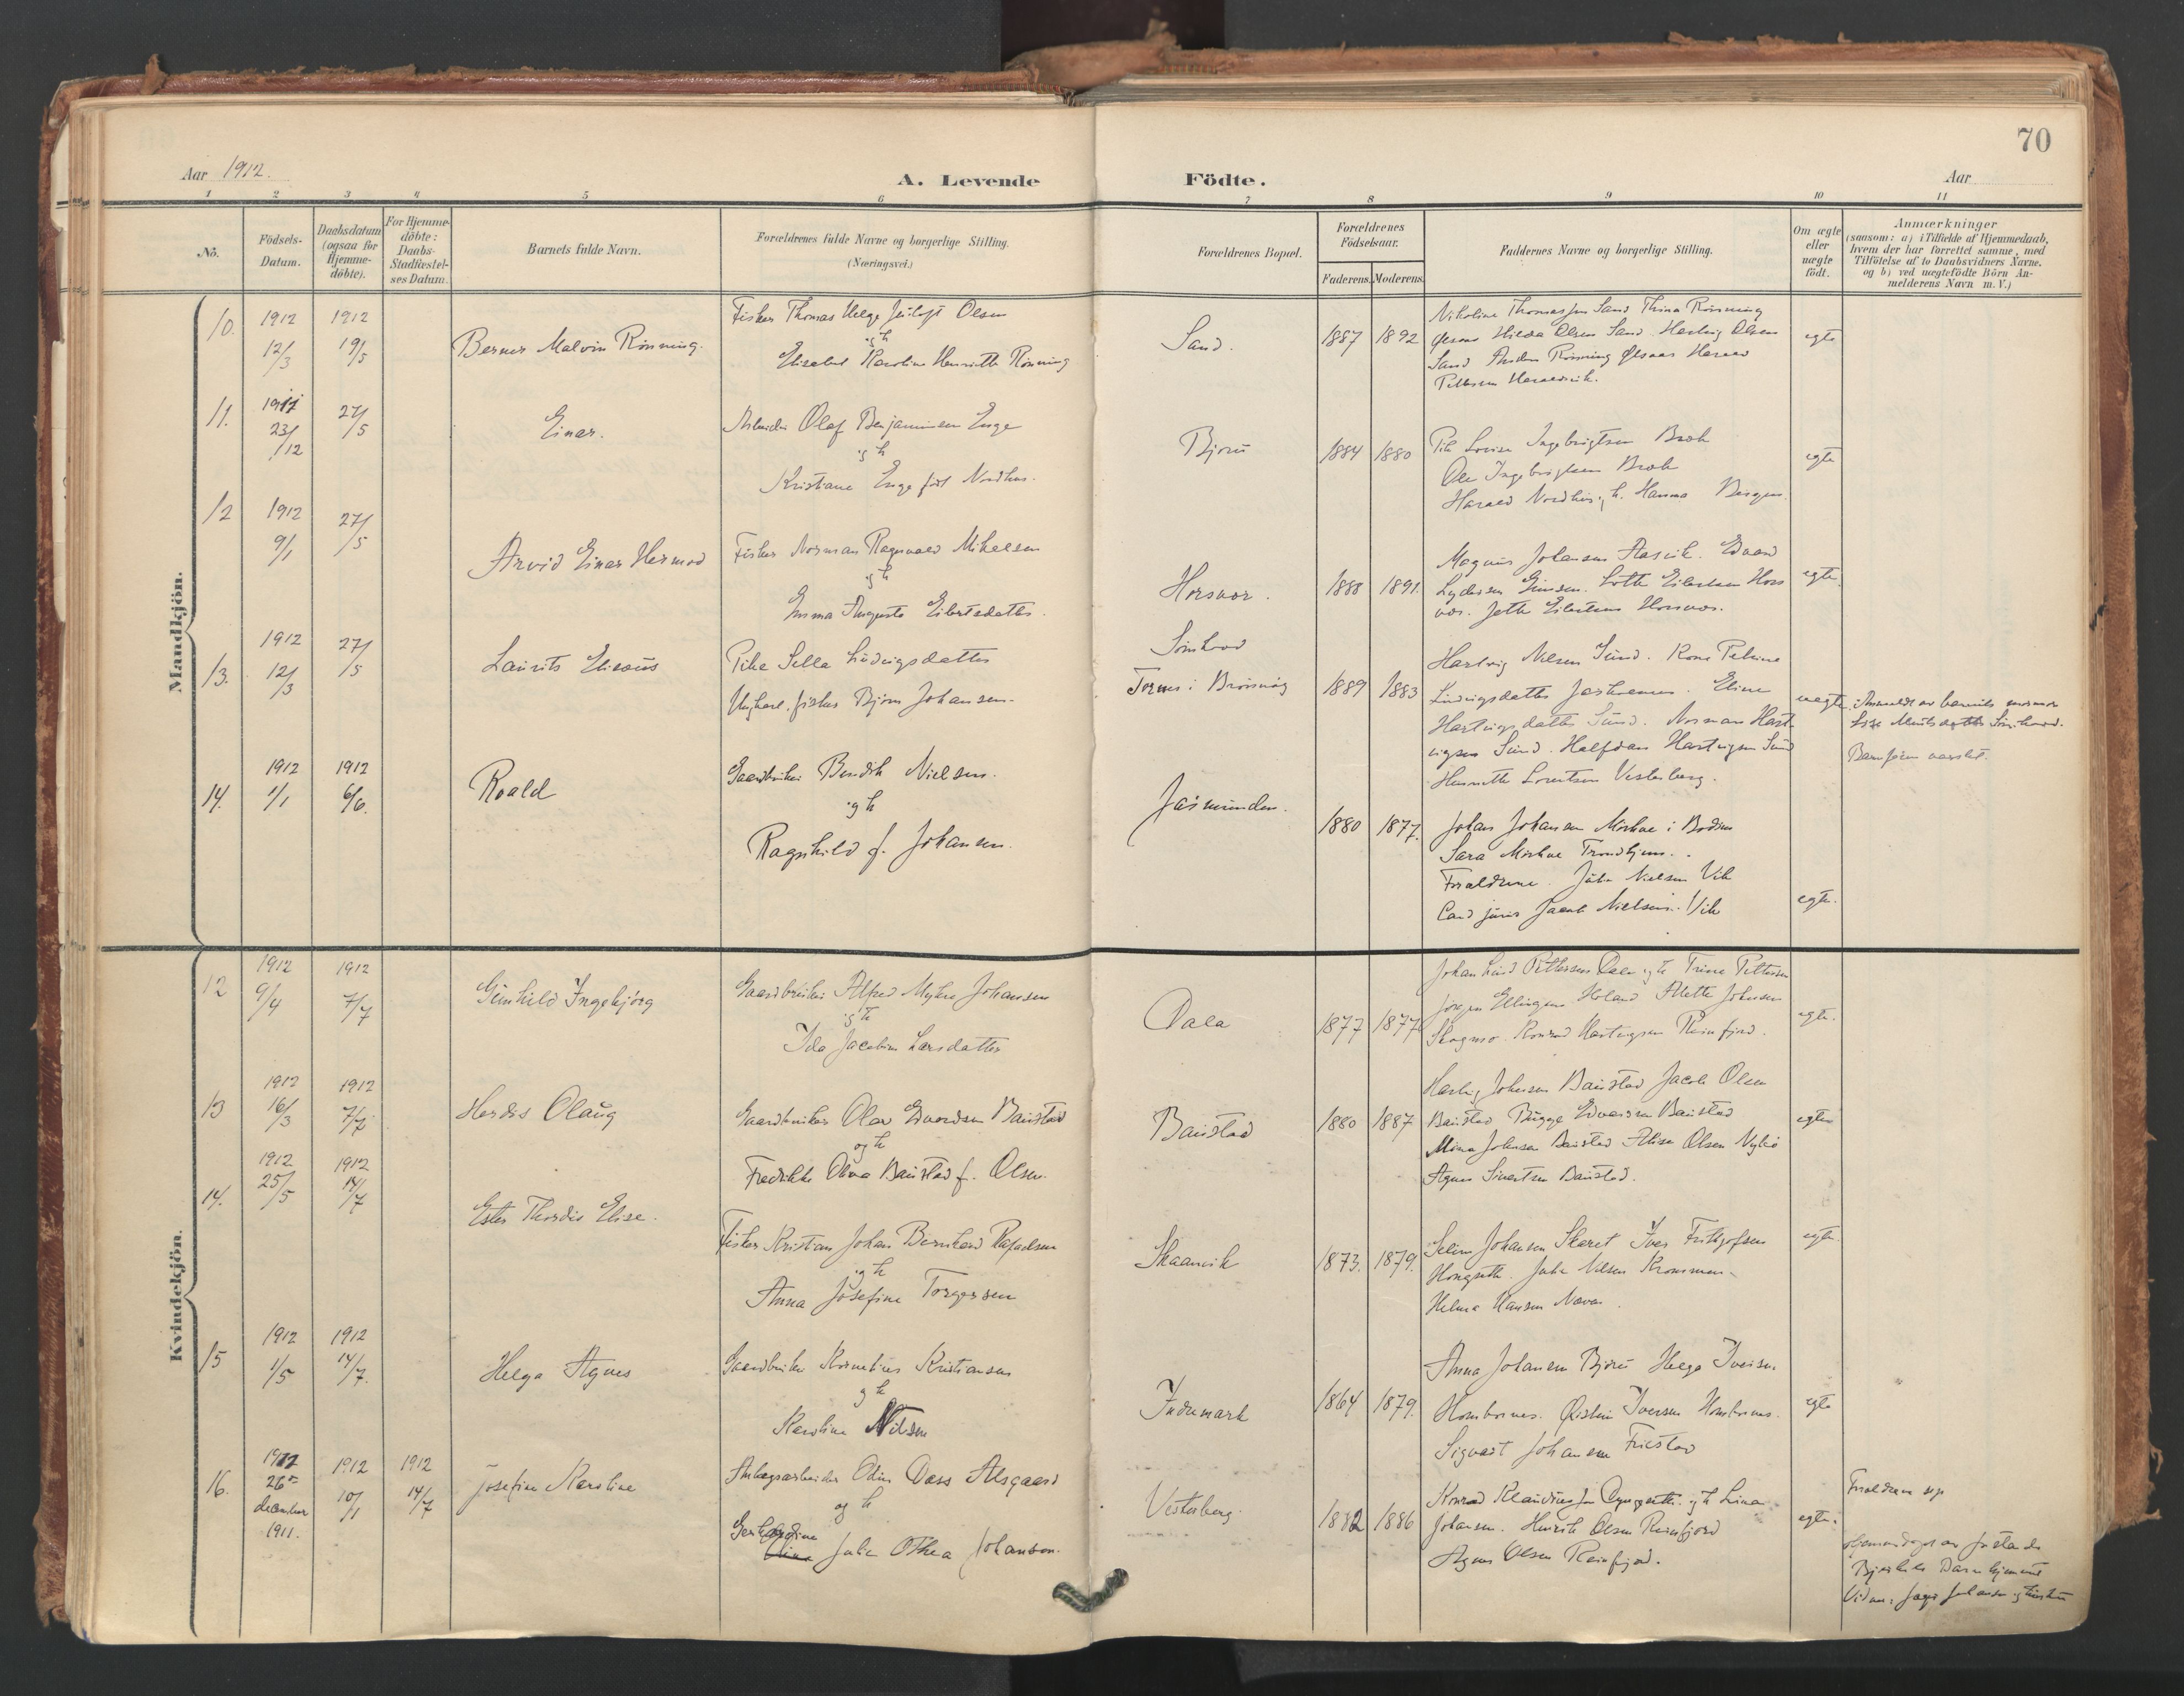 70
Aar 1912.
A. Levende Födte.
Aar
1 2 3 4 5 6 7 8 9 10 11
No.
Födsels-Datum.
Daabsdatum (ogsaa for Hjemmedöbte).
For Hjemmedöbte: Daabs-Stadfæstelses Datum.
Barnets fulde Navn.
Forældrenes fulde Navne og borgerlige Stilling. (Næringsvei.)
Forældrenes Bopæl.
Forældrenes Födselsaar.
Faderens. Moderens.
Faddernes Navne og borgerlige Stilling.
Om ægte eller uægte födt.
Anmærkninger
(saasom: a) i Tilfælde af Hjemmedaab,
hvem der har forrettet samme, med
Tilföielse af to Daabsvidners Navne.
og b) ved uægtefödte Börn An-
melderens Navn m. V.)
Mandkjön.
10. 1912 12/3 1912 19/5
Berner Malvin Rönning.
Fisker Thomas Helge Olsen
og h
Elisabet Karoline Henriette Rönning
Sand. 1887 1892
Nikoline Thomassen Sand Thina Rönning
Hilda Olsen Sand. Hartvig Olsen
Sand Rönning Harald
Pettersen
egte
11. 1911 23/12 27/5
Einar.
Arbeider Olaf Benjaminsen Enge
og h
Kristiane Enge född Nordhus.
Bjørn 1884 1880
Pike Lovise Ingebrigtsen Brok
Ole Ingebrigtsen Brok
Harald Nordhus og h. Hanna Bergen.
egte
12 1912 9/1 27/5
Arvid Einar Hermod
Fisker Norman Ragnvald Mikelsen
og h
Emma Augusta Eilertsdatter.
Horsvær. 1888 1891.
Magnus Johansen Aasvik. Edvard
Lydersen Lotte Eilertsen Hors
vær. Jette Eilertsen Horsvær.
egte.
13. 1912 12/3 27/5
Laurits Elisæus
Pike Sella Ludvigsdatter
Ungkarl, fisker Bjørn Johansen.
Sömhovd
Tornes i Brönnöy 1889 1883
Hartvig Nilsen Sund. Kone Petrine
Ludvigsdatter. Eline
Hartvigsdatter Sund. Norman Hart
vigsen Sund. Halfdan Hartvigsen Sund
Henriette Lorentsen Vesterberg.
uegte.
Anmeldt av barnets mormor
Sömhovd.
14. 1912 1/1 1912 6/6.
Roald
Gaardbruker Bendik Nielsen.
og h
Ragnhild f. Johansen.
1880 1877.
Johan Johansen Mörkve i Bodin
Sara Mörkve Trondhjem.
Forældrene. Julie Nielsen Vik
Cand juris Jacob Nielsen. Vik
egte.
Kvindekjön.
12 1912 9/4 1912 7/7
Gunhild Ingebjørg
Gaardbruker Alfred Myhre Johansen
og h
Ida Jacobine Larsdatter
Dala 1877 1877
Johan Pettersen Dala og h Trine Pettersen
Jørgen Ellingsen Holand Alette Johnsen
Konrad Hartvigsen Reinfjord.
egte.
13 1912 16/3 1912 7/7
Herdis Olaug
Gaardbruker Olav Edvardsen Baustad
og h
Fredrikke Olina Baustad f. Olsen.
Baustad 1880 1887
Hartvig Johnsen Baustad Jacob Olsen
Baustad Bugge Edvardsen Baustad
Mina Johnsen Baustad Elise Olsen
Agnes Sivertsen Baustad.
egte
14. 1912 25/5 1912 14/7
Ester Thordis Elise.
Fisker Kristian Johan Bernhard Rafaelsen
og h
Anna Josefine Torgersen
Skaanvik 1873. 1879.
Seline Johansen Skaret Iver Frithjofsen
Hongseth. Julie Nilsen
Helma Hansen
egte.
15 1912 1/5 1912 14/7.
Helga Agnes
Gaardbruker Kornelius Kristiansen
og h
Karoline Nilsen
Indremark 1864 1879.
Anna Johansen Bjørn Helga Iversen
Hombornes. Iversen Hombornes.
Sigvart Johansen
egte
16. 1912 26de december 1911. 1912 10/1 1912 14/7
Josefine Karoline
Anlægsarbeider Odin Dass Alsgaard
og h
Gerhardine Julie Othea Johansen.
Vesterberg. 1882 1886
Konrad Klaudiussen og h Lina
Johansen. Henrik Olsen Reinfjord
Agnes Olsen Reinfjord.
egte.
Forældrene